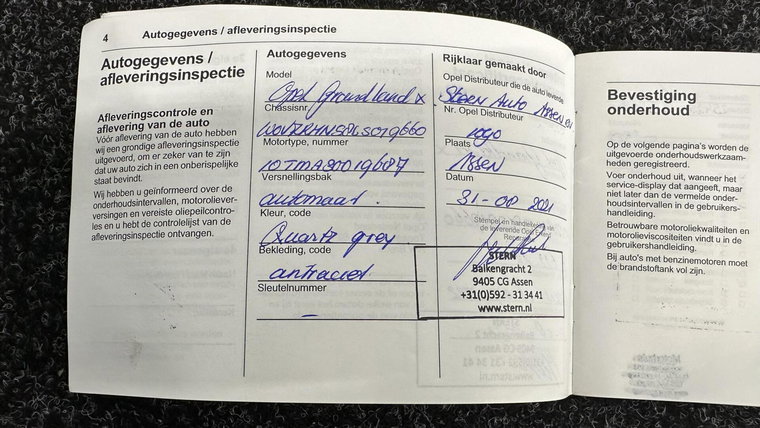 4
Autogegevens / afleveringsinspectie
Autogegevens /
afleveringsinspectie
Afleveringscontrole en
aflevering van de auto
Vóór aflevering van de auto hebben
wij een grondige afleveringsinspectie
uitgevoerd, om er zeker van te zijn
dat uw auto zich in een onberispelijke
staat bevindt.
Wij hebben u geïnformeerd over de
onderhoudsintervallen, motoroliever-
versingen en vereiste oliepeilcontro-
les en u hebt de controlelijst van de
afleveringsinspectie ontvangen.
Autogegevens
Model
Opel Grandland X
Chassisnr.
Motortype, nummer
Versnellingsbak
automaat.
Kleur, code
Quartz grey
Bekleding, code
antraciet
Sleutelnummer
–
Rijklaar gemaakt door
Opel Distributeur die de auto leverde
Stern Auto Assen
Nr. Opel Distributeur
Plaats
Assen
Datum
31-08 2021
Stempel en handtekening van
de leverende Opel
STERN
Balkengracht 2
9405 CG Assen
+31(0)592 - 31 34 41
www.stern.nl
Bevestiging
onderhoud
Op de volgende pagina's worden de
uitgevoerde onderhoudswerkzaam-
heden geregistreerd.
Voer onderhoud uit, wanneer het
service-display dat aangeeft, maar
niet later dan de vermelde onder-
houdsintervallen in de gebruikers-
handleiding.
Betrouwbare motoroliekwaliteiten en
motorolieviscositeiten vindt u in de
gebruikershandleiding.
Bij auto's met benzinemotoren moet
de brandstoftank vol zijn.